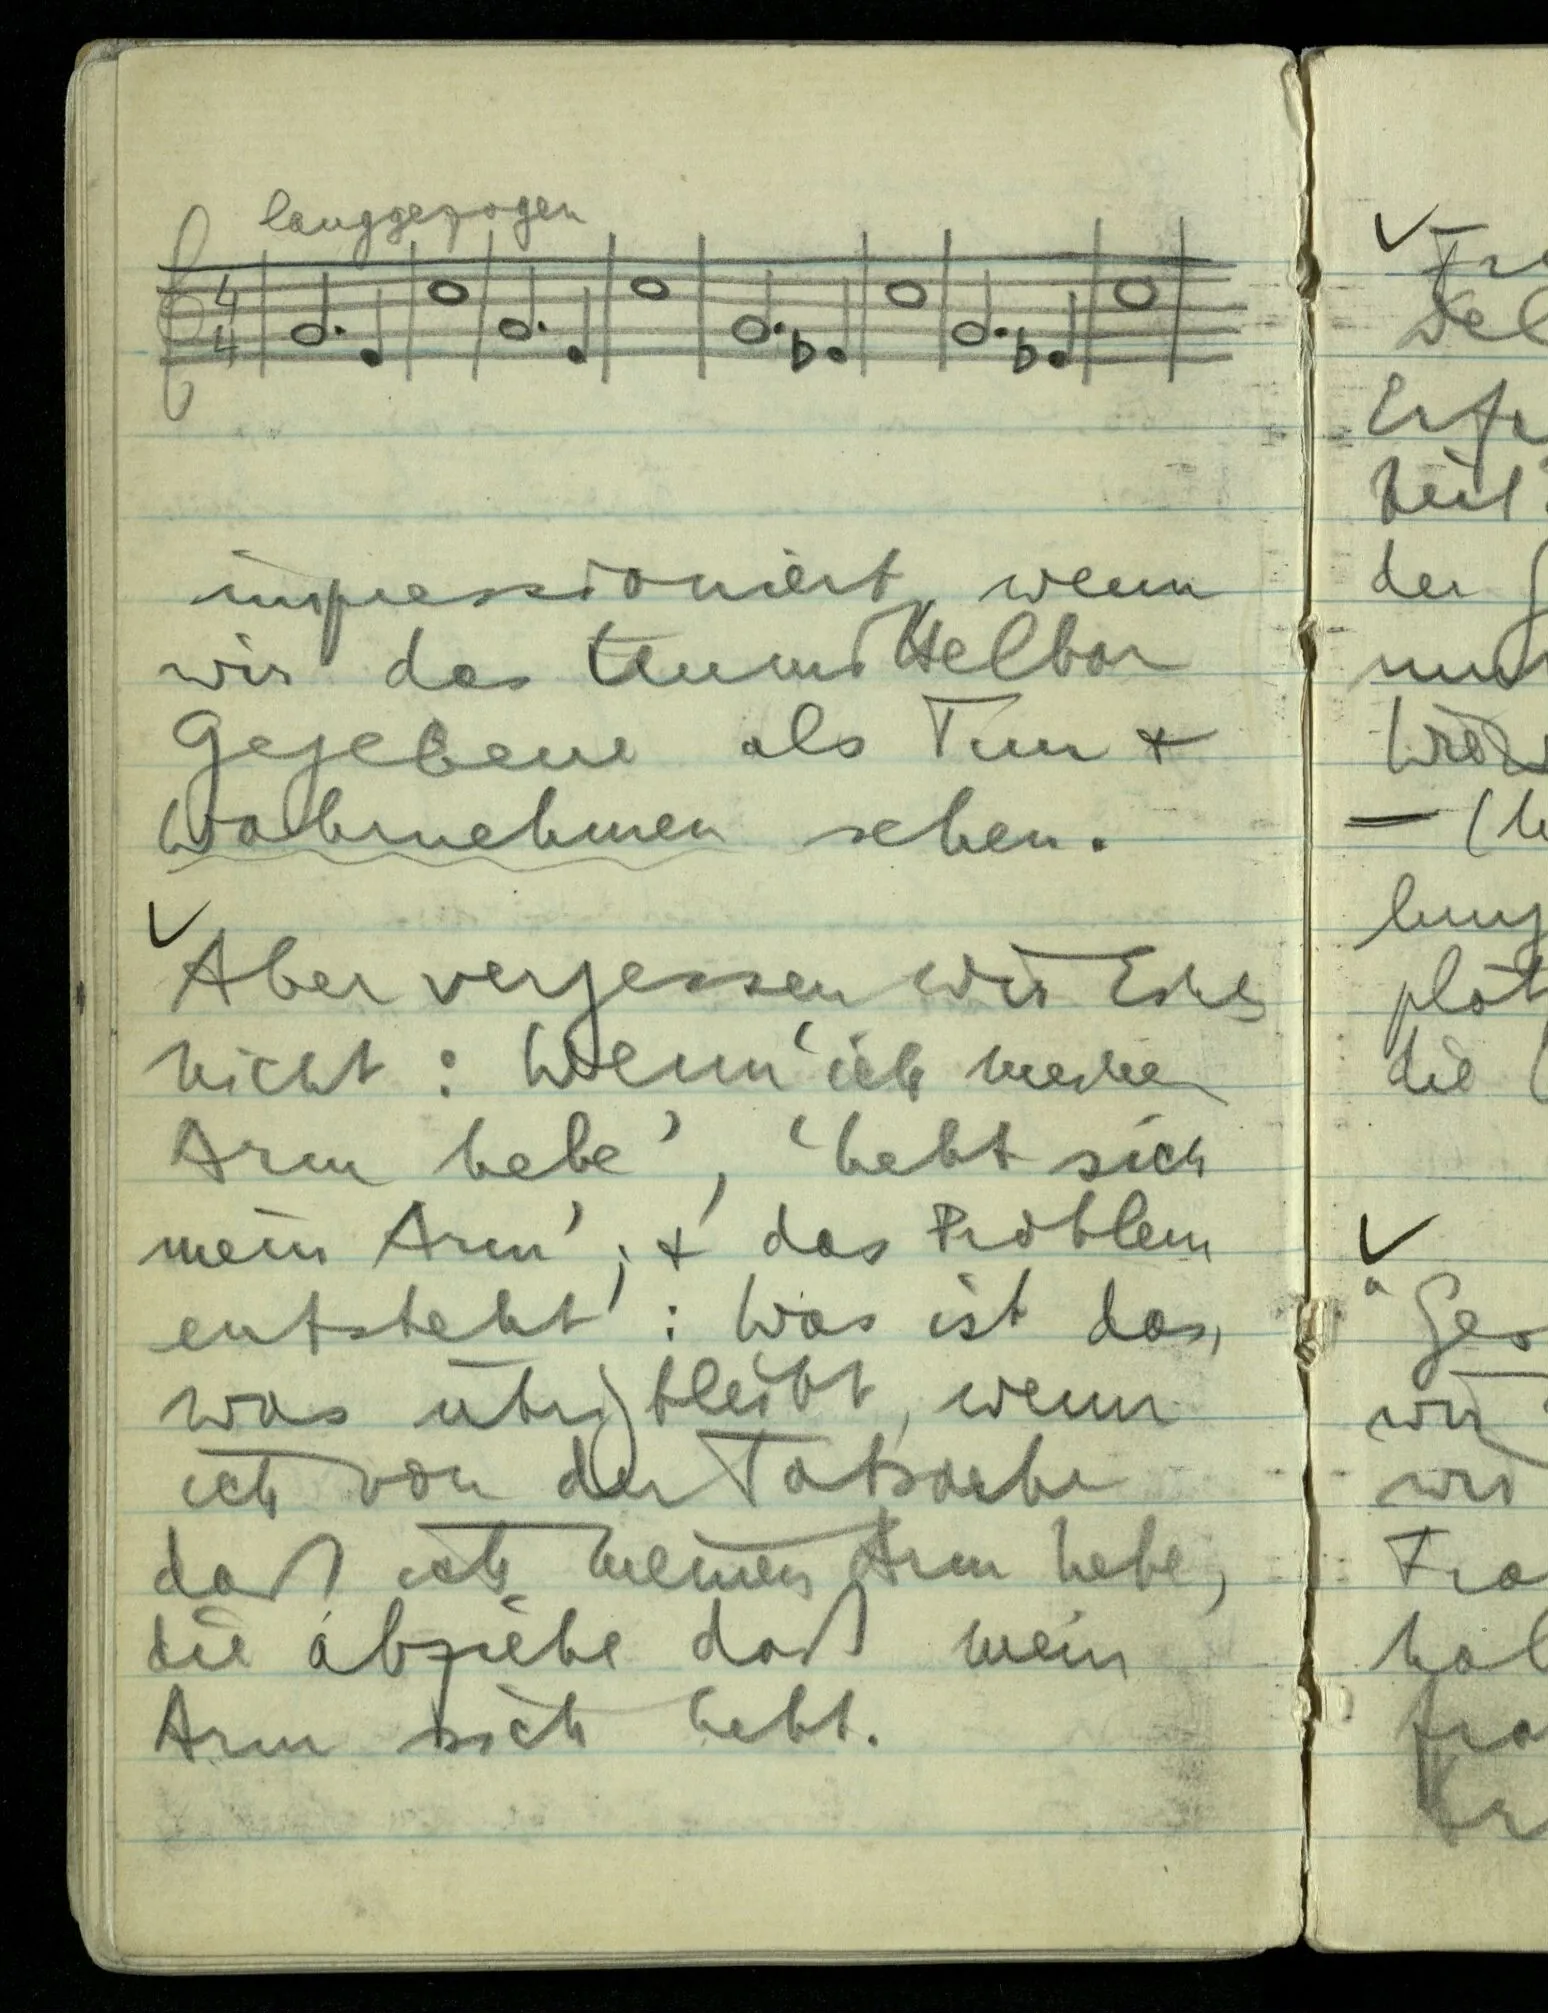 langgezogen
4
4
impressioniert, wenn
wir das Unmittelbar
Gegebene als Tun &
Wahrnehmen sehen.
✓
Aber vergessen wir Eines
nicht: Wenn ‘ich meinen
Arm hebe’, ‘hebt sich
mein Arm’; & das Problem
entsteht: Was ist das,
was übrigbleibt, wenn
ich von der Tatsache
daß ich meinen Arm hebe,
die abziehe daß mein
Arm sich hebt.
✓
der
✓
wir
die